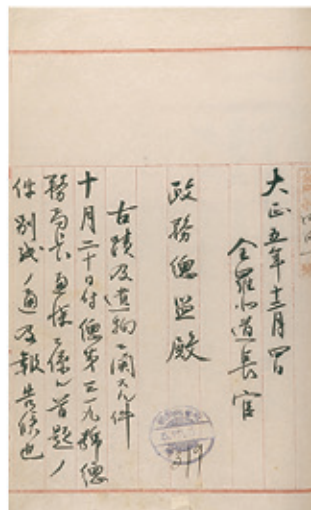 大正五年十二月四日
全羅北道長官
政務總監殿
古蹟及遺物ニ關スル件
十月二十日付總第三一九號總
務局長通牒ニ係ル首題ノ
件別紙ノ通及報告候也